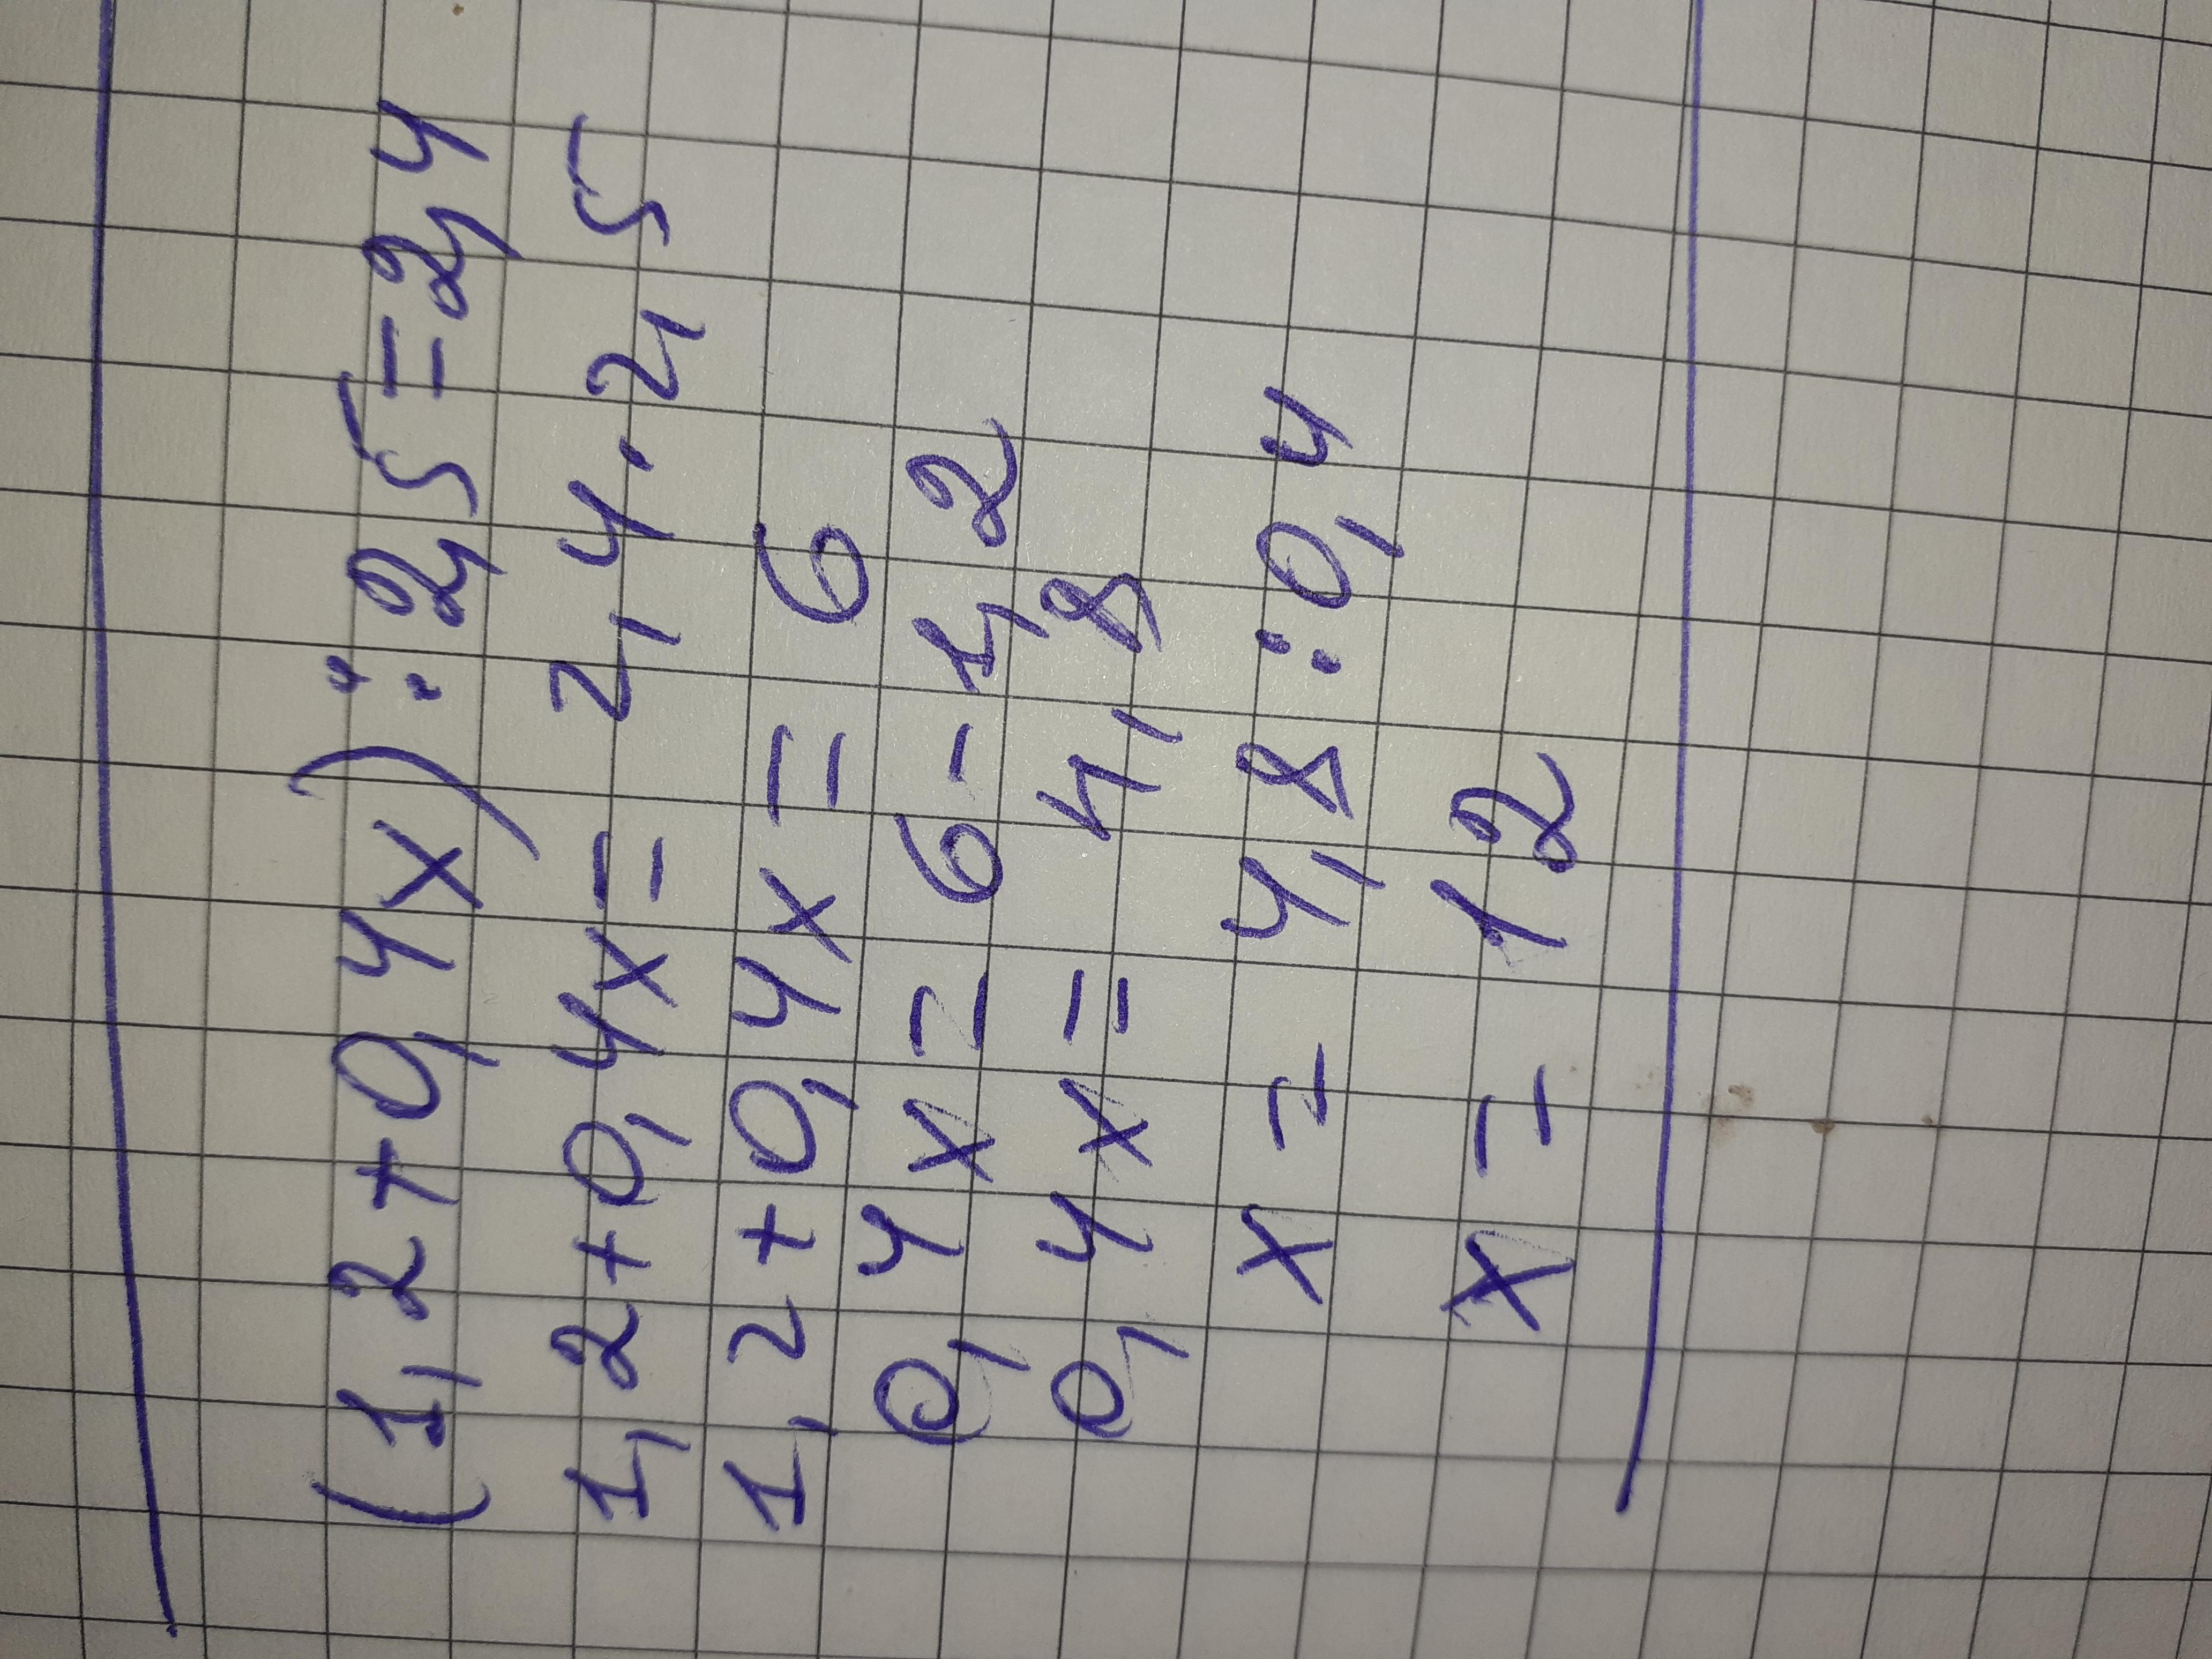 (1,2+0,4x):2,5=2,4
1,2+0,4x= 2,4·2,5
1,2+0,4x= 6
0,4x= 6-1,2
0,4x= 4,8
x= 4,8:0,4
x= 12